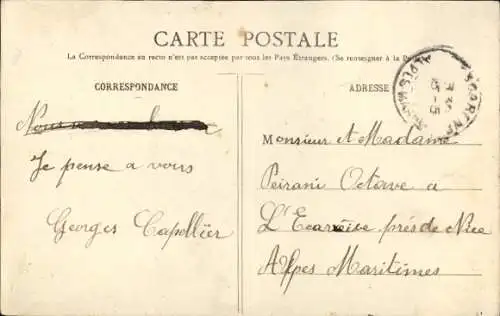 CARTE POSTALE
La Correspondance au recto n'est pas acceptée par tous les Pays Étrangers. (Se renseigner à la
CORRESPONDANCE
ADRESSE
Nous
Je pense a vous
Georges Capellier
Monsieur et Madame
Peirani Octave a
L'Ecarène près de Nice
Alpes Maritimes